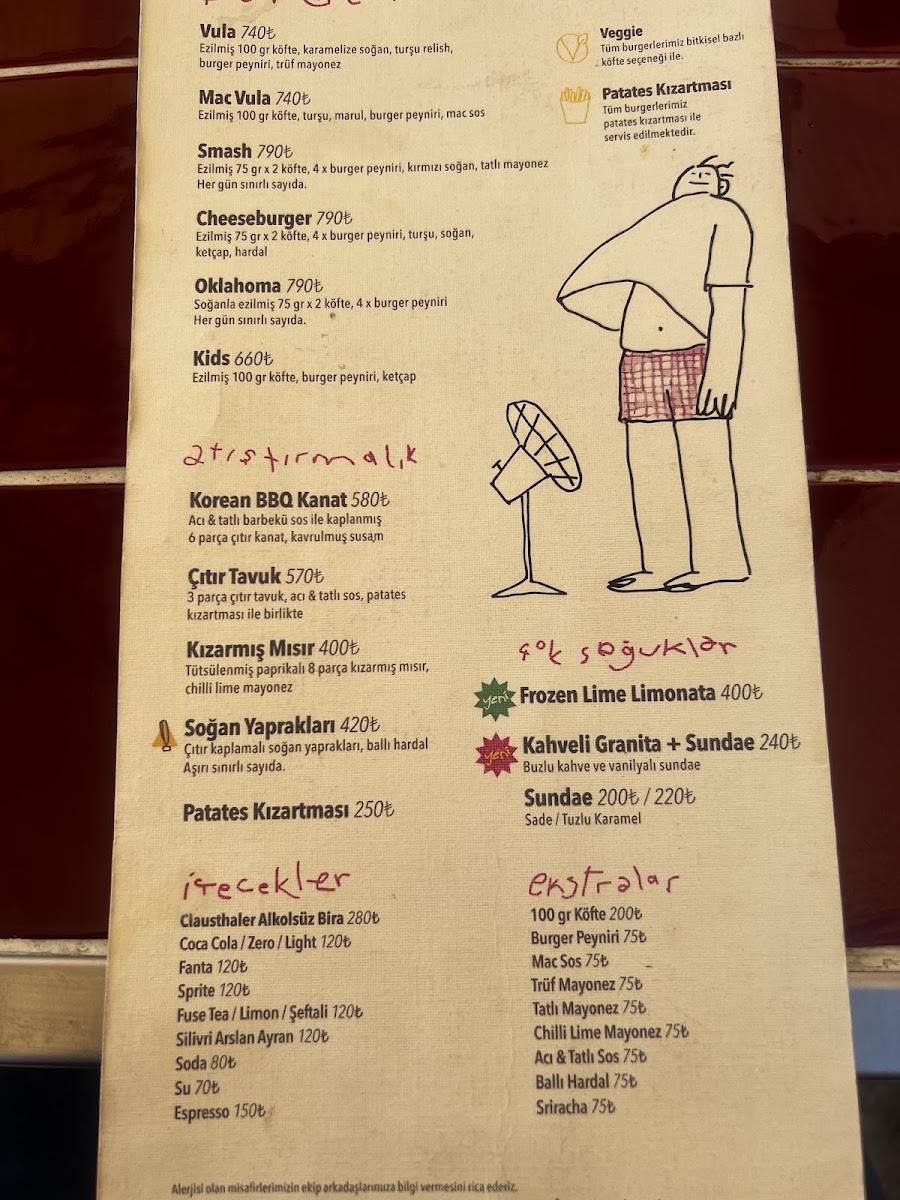 Vula 740₺
Ezilmiş 100 gr köfte, karamelize soğan, turşu relish,
burger peyniri, trüf mayonez
Mac Vula 740₺
Ezilmiş 100 gr köfte, turşu, marul, burger peyniri, mac sos
Smash 790₺
Ezilmiş 75 gr x 2 köfte, 4 x burger peyniri, kırmızı soğan, tatlı mayonez
Her gün sınırlı sayıda.
Cheeseburger 790₺
Ezilmiş 75 gr x 2 köfte, 4 x burger peyniri, turşu, soğan,
ketçap, hardal
Oklahoma 790₺
Soğanla ezilmiş 75 gr x 2 köfte, 4 x burger peyniri
Her gün sınırlı sayıda.
Kids 660₺
Ezilmiş 100 gr köfte, burger peyniri, ketçap
Veggie
Tüm burgerlerimiz bitkisel bazlı
köfte seçeneği ile.
Patates Kızartması
Tüm burgerlerimiz
patates kızartması ile
servis edilmektedir.
atıştırmalık
Korean BBQ Kanat 580₺
Acı & tatlı barbekü sos ile kaplanmış
6 parça çıtır kanat, kavrulmuş susam
Çıtır Tavuk 570₺
3 parça çıtır tavuk, acı & tatlı sos, patates
kızartması ile birlikte
Kızarmış Mısır 400₺
Tütsülenmiş paprikalı 8 parça kızarmış mısır,
chilli lime mayonez
Soğan Yaprakları 420₺
Çıtır kaplamalı soğan yaprakları, ballı hardal
Aşırı sınırlı sayıda.
Patates Kızartması 250₺
çok soğuklar
yeni Frozen Lime Limonata 400₺
yeni Kahveli Granita + Sundae 240₺
Buzlu kahve ve vanilyalı sundae
Sundae 200₺ / 220₺
Sade / Tuzlu Karamel
içecekler
Clausthaler Alkolsüz Bira 280₺
Coca Cola / Zero / Light 120₺
Fanta 120₺
Sprite 120₺
Fuse Tea / Limon / Şeftali 120₺
Silivri Arslan Ayran 120₺
Soda 80₺
Su 70₺
Espresso 150₺
ekstralar
100 gr Köfte 200₺
Burger Peyniri 75₺
Mac Sos 75₺
Trüf Mayonez 75₺
Tatlı Mayonez 75₺
Chilli Lime Mayonez 75₺
Acı & Tatlı Sos 75₺
Ballı Hardal 75₺
Sriracha 75₺
Alerjisi olan misafirlerimizin ekip arkadaşlarımıza bilgi vermesini rica ederiz.